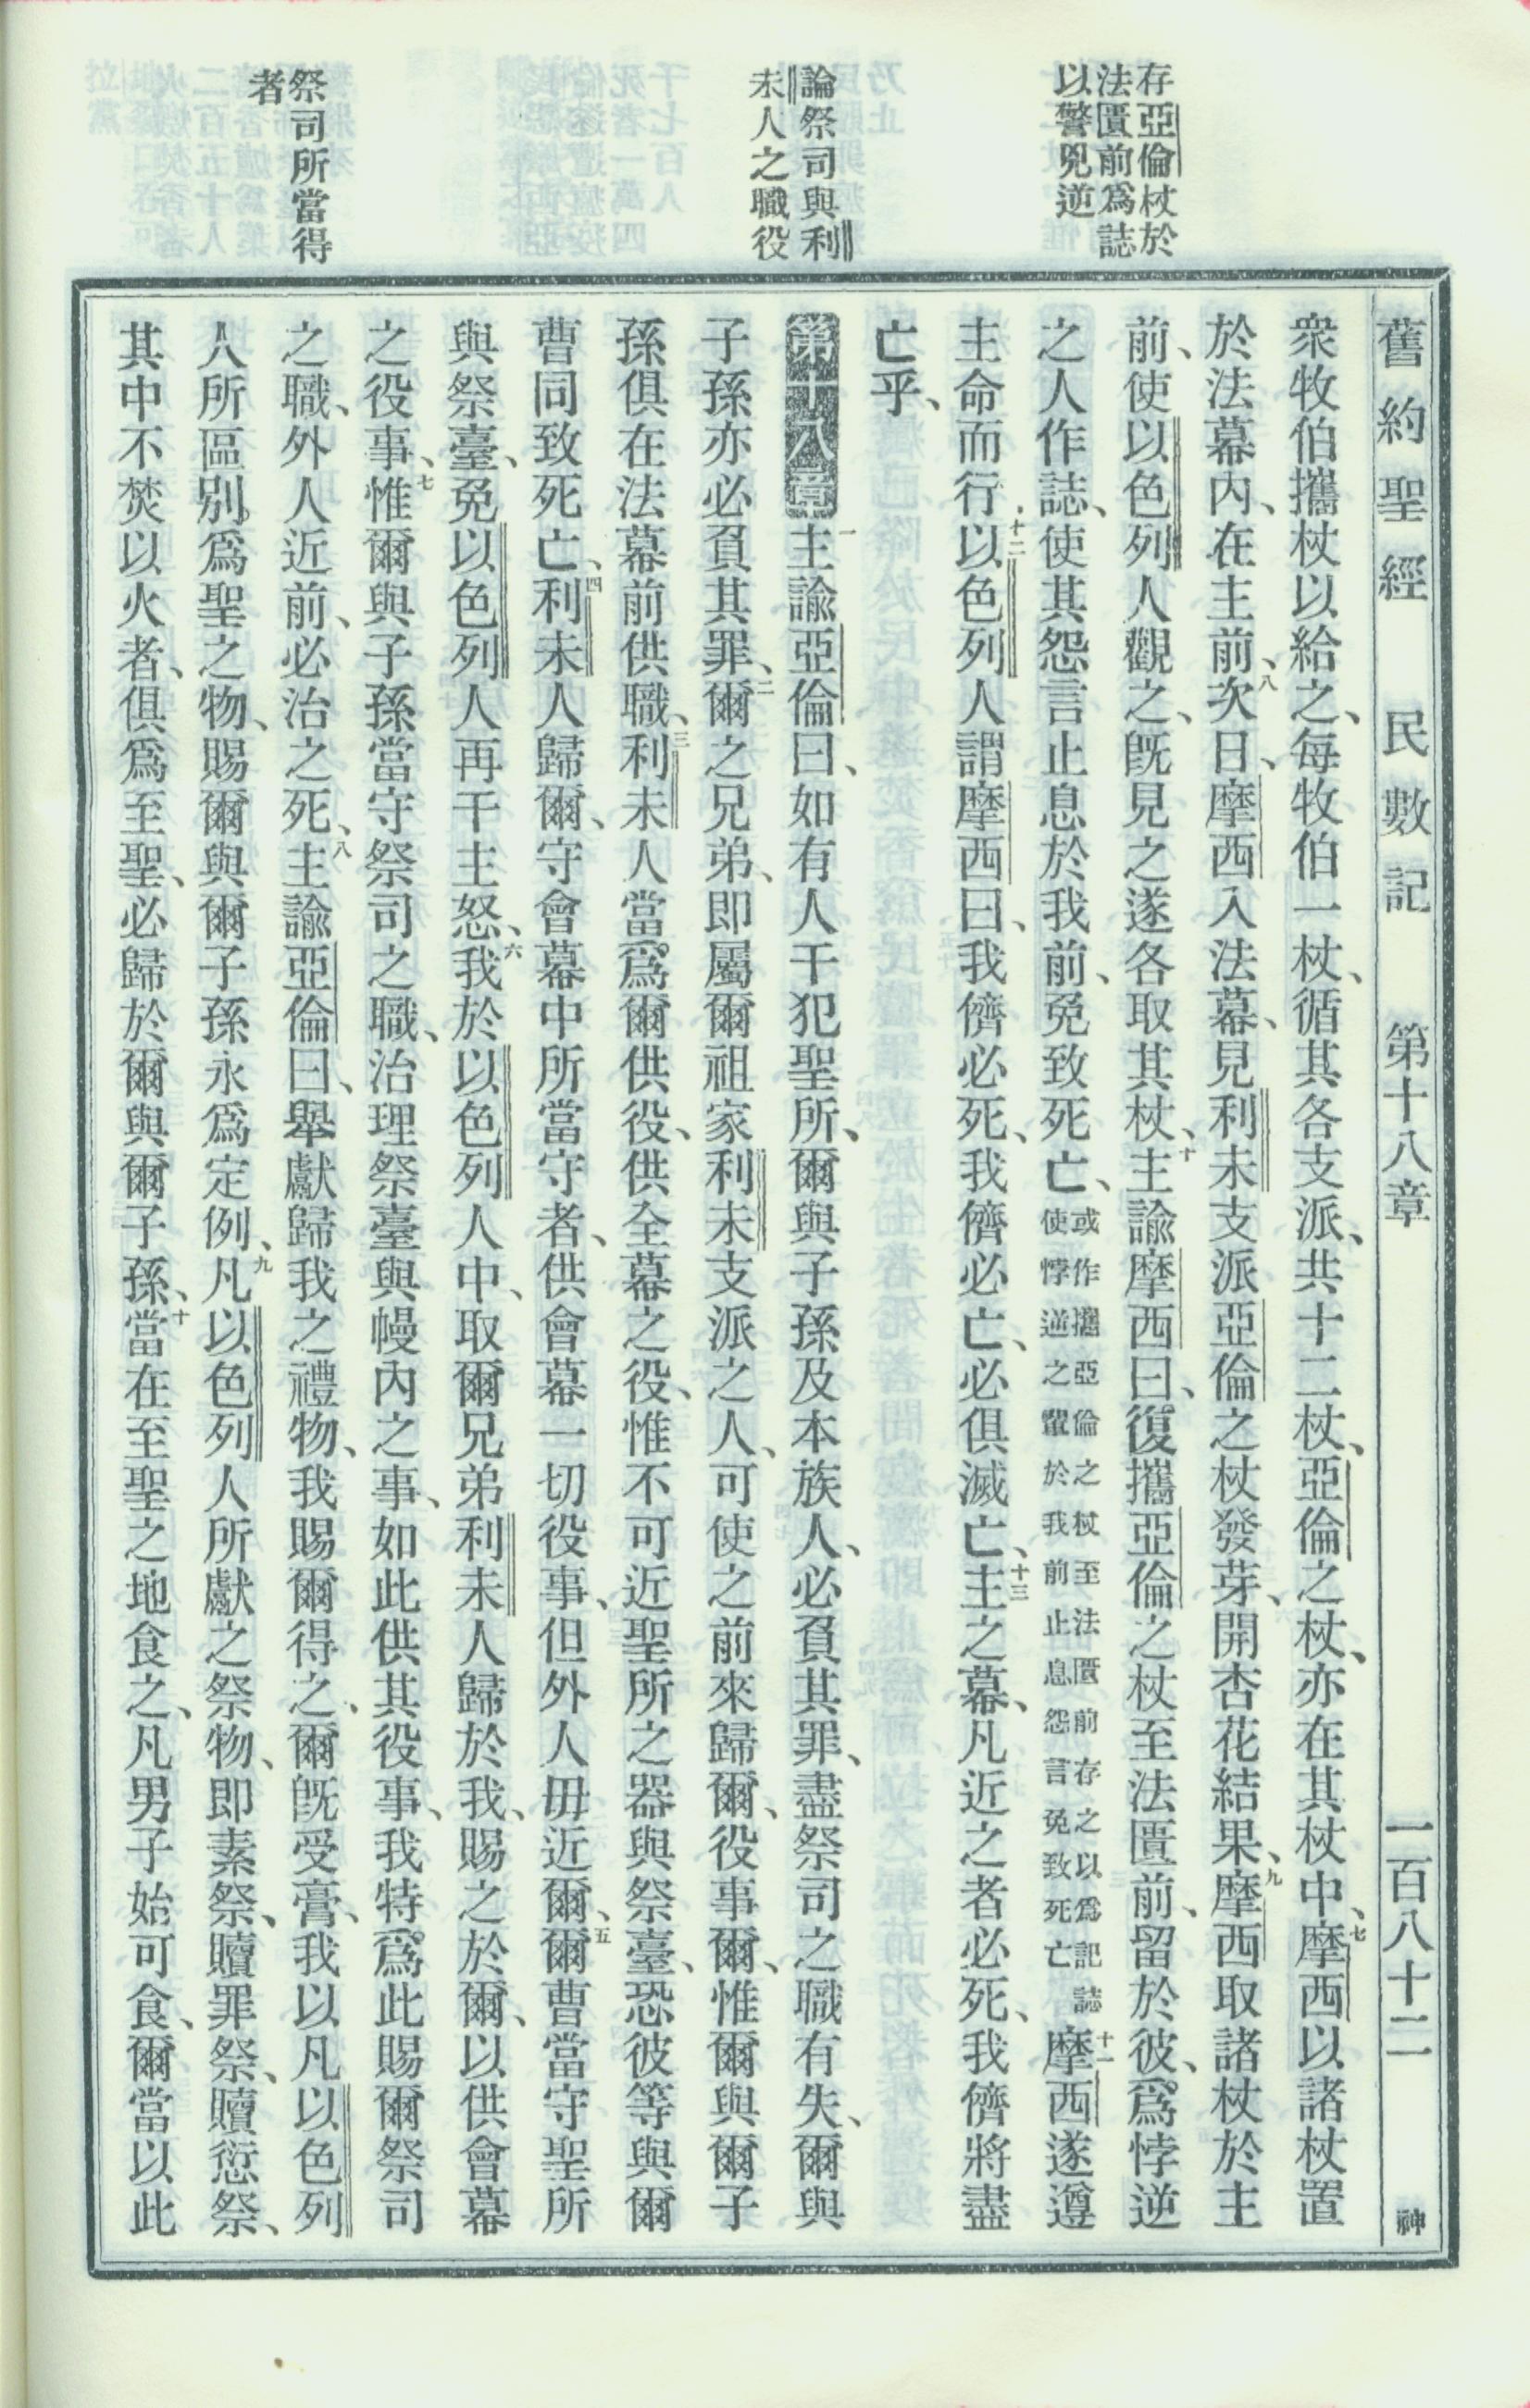 舊約聖經 民數記 第十八章 一百八十二 神
存亞倫杖於
法匱前爲誌
以警兇逆
論祭司與利
未人之職役
祭司所當得
者
衆牧伯攜杖以給之、每牧伯一杖、循其各支派、共十二杖、亞倫之杖、亦在其杖中、七摩西以諸杖置
於法幕內、在主前、八次日、摩西入法幕、見利未支派亞倫之杖發芽、開杏花結果、九摩西取諸杖於主
前、使以色列人觀之、旣見之遂各取其杖、十主諭摩西曰、復攜亞倫之杖至法匱前、留於彼、爲悖逆
之人作誌、使其怨言止息於我前、免致死亡、或作攜亞倫之杖至法匱前存之以爲記誌使悖逆之輩於我前止息怨言免致死亡十一摩西遂遵
主命而行、十二以色列人謂摩西曰、我儕必死、我儕必亡、必俱滅亡、十三主之幕、凡近之者必死、我儕將盡
亡乎、
第十八章 一主諭亞倫曰、如有人干犯聖所、爾與子孫及本族人、必負其罪、盡祭司之職有失、爾與
子孫亦必負其罪、二爾之兄弟、即屬爾祖家利未支派之人、可使之前來歸爾、役事爾、惟爾與爾子
孫俱在法幕前供職、三利未人當爲爾供役、供全幕之役、惟不可近聖所之器與祭臺、恐彼等與爾
曹同致死亡、四利未人歸爾、守會幕中所當守者、供會幕一切役事、但外人毋近爾、五爾曹當守聖所
與祭臺、免以色列人再干主怒、六我於以色列人中、取爾兄弟利未人歸於我、賜之於爾、以供會幕
之役事、七惟爾與子孫當守祭司之職、治理祭臺與幔內之事、如此供其役事、我特爲此賜爾祭司
之職、外人近前、必治之死、八主諭亞倫曰、舉獻歸我之禮物、我賜爾得之、爾旣受膏、我以凡以色列
人所區別爲聖之物、賜爾與爾子孫永爲定例、九凡以色列人所獻之祭物、即素祭、贖罪祭、贖愆祭、
其中不焚以火者、俱爲至聖、必歸於爾與爾子孫、十當在至聖之地食之、凡男子始可食、爾當以此